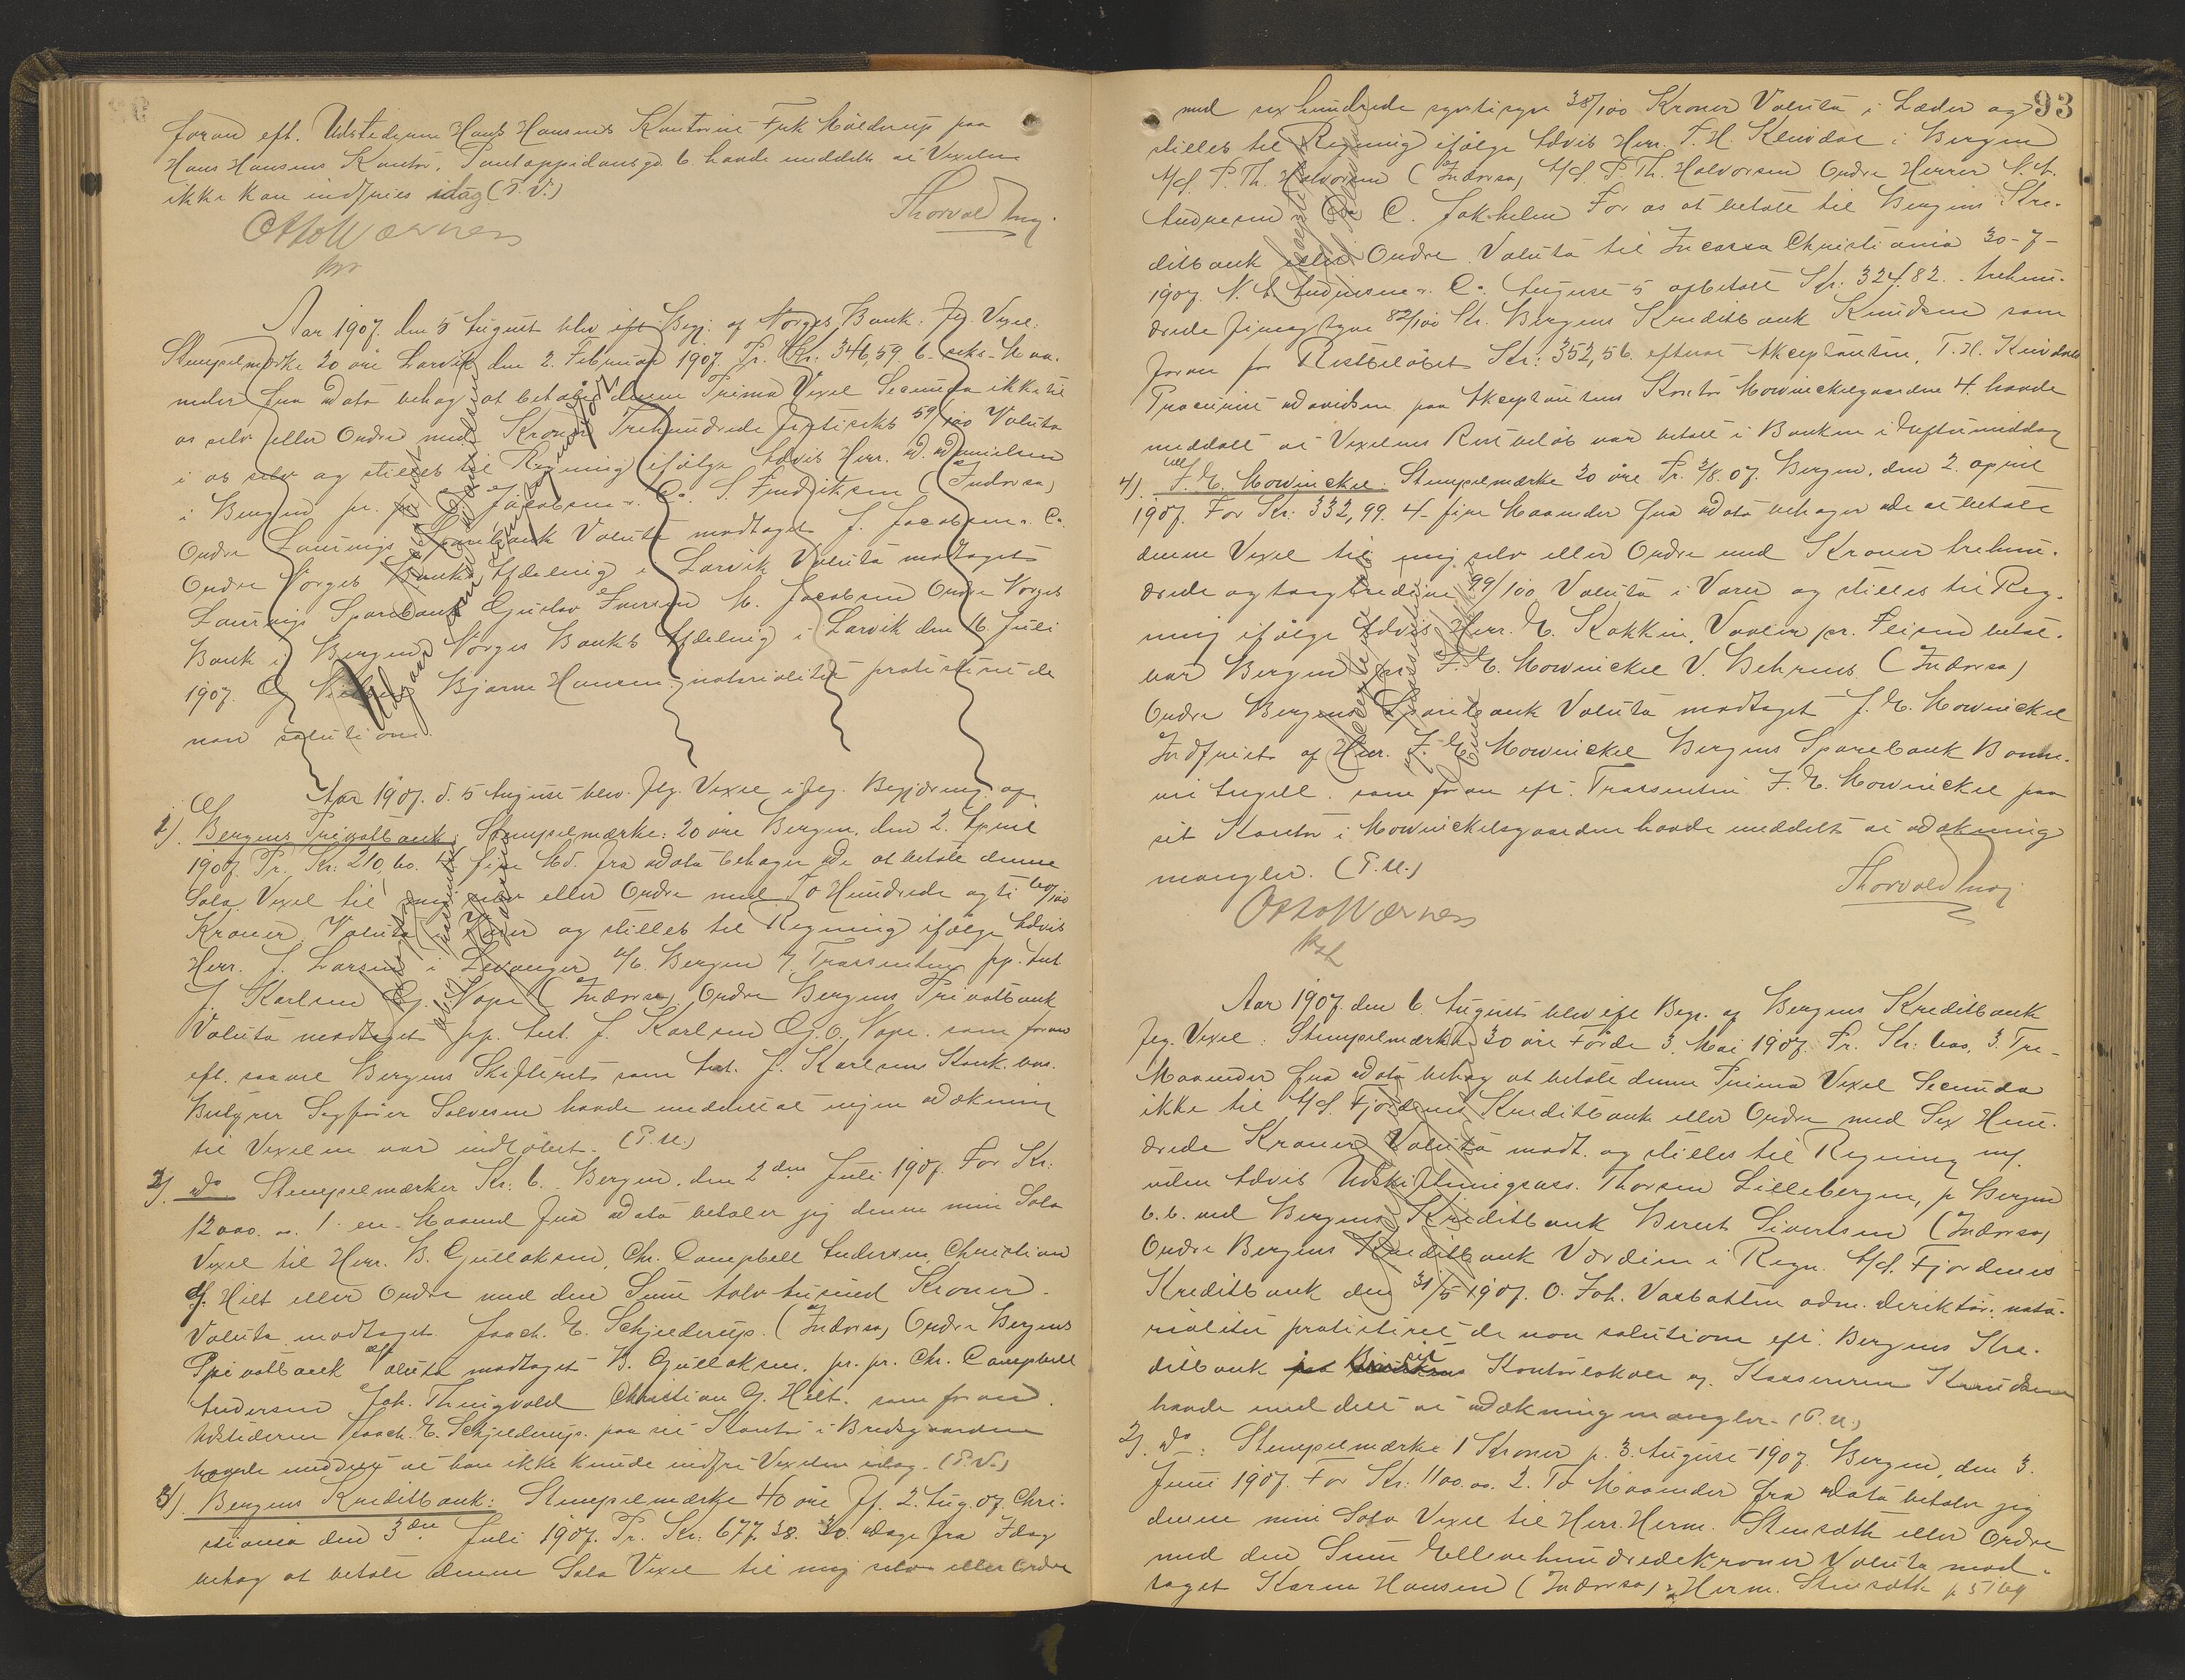 foran eft. Udstederen Hans Hansens Kontorist Frk. paa
Hans Hansens Kontor, Pantoppidansgd 6 havde meddelt at Vexelen
ikke kan indfries idag (P. V.)
Otto Wærner
Thorvald
Aar 1907. den 5 August blev eft. Begj. af Norges Bank. Flg. Vexel:
Stempelmærke 20 øre Larvik den 2. Februar 1907. Pr. Kr: 346,59 6 seks Maa-
neder fra Dato behag at betale denne Prima Vexel Secunda ikke til
os selv eller Ordre med Kroner Trehundrede fortiseks 59/100 Valuta
i os selv og stilles til Regning ifølge Advis Herr. D. Danielsen
i Bergen pr. pr. Jacobsen & Co. S. Fredriksen (Indorsa)
Ordre Laurvigs Sparebank Valuta modtaget J. Jacobsen & Co.
Ordre Norges Banks Afdeling i Larvik Valuta modtaget
Laurvigs Sparebank Gustav Iversen M. Jacobsen Ordre Norges
Bank i Bergen Norges Banks Afdeling i Larvik den 16. Juli
1907. Bjarne Hansen notorialiter protesteret de
non solutione.
Udgaar
Aar 1907. d. 5 August blev flg. Vexel iflg. Begjæring af
1). Bergens Privatbank: Stempelmærke: 20 øre Bergen, den 2. April
1907. Pr. Kr. 210,60. 4 fire Md. fra Dato behager De at betale denne
Sola Vexel til mig selv eller Ordre med To Hundrede og ti 60/100
Kroner. Valuta i Varer og stilles til Regning ifølge Advis
Herr. J. Larsen i Levanger Bergen Trassenten pp. Ant
J. Karlsen O. J. Vope (Indorsa) Ordre Bergens Privatbank
Valuta modtaget pp. Ant. J. Karlsen O. J. Vope. som foran
eft. saavel Bergens Skifteret som Ant. J. Karlsens Konk. bos.
Bestyrer Sagfører Solvesen havde meddelt at ingen Dækning
til Vexelen var indløbet. (P. U.)
2). Do Stempelmærker Kr: 6. Bergen, den 2 den Juli 1907. For Kr:
12000.00. 1 en Maaned fra Dato betaler jeg denne min Sola
Vexel til Herr. B. Gullaksen, Chr. Campbell Andersen, Christian
G. Hilt eller Ordre med den Sum tolv tusind Kroner.
Valuta modtaget. Joach. E. Schjelderup. (Indorsa) Ordre Bergens
Privatbank Valuta modtaget B. Gullaksen. pr. pr. Chr. Campbell
Andersen Joh. Thingvold Christian G. Hilt. som foran
Udstederen Joach. E. Schjelderup. paa sit Kontor i Bredsgaarden
havde meddelt at han ikke kunde indfri Vexelen idag. (P. V.)
3). Bergens Kreditbank: Stempelmærke 40 øre Pf. 2. Aug. 07. Chri-
stiania den 3 die Juli 1907. Pr. Kr. 677.38. 30. Dage fra Idag
behag at betale denne Sola Vexel til mig selv eller Ordre
93
med sex hundrede syvtisyv 38/100 Kroner Valuta i Læder og
stilles til Regning ifølge Advis Herr. T. H. Kleivdal i Bergen
A/S. P. Th. Halvorsen (Indorsa) A/S. P. Th. Halvorsen Ordre Herrer N. A.
Andresen & Co C. Jakhelln For os at betale til Bergens Kre-
ditbank eller Ordre. Valuta til Incasso Christiania 30-7-
1907. N. A. Andresen & Co. August 5 afbetalt Kr: 324.82. trehun-
drede firetyve 82/100 Kr. Bergens Kreditbank Knudsen som
foran for Restbeløbet Kr: 352,56 efterat Akceptanten, T. H. Kleivdals
Procurist Davidsen paa Akceptantens Kontor Mowinckelgaarden 4. havde
meddelt at Vexelens Restbeløb var betalt i Banken i Eftermiddag
4). J. E. Mowinckel: Stempelmærke 20 øre Pr. 2/8. 07. Bergen, den 2. april
1907. For Kr: 332,99. 4 fire Maaneder fra Dato behager De at betale
denne Vexel til mig selv eller Ordre med Kroner trehun-
drede og totredive 99/100 Valuta i Varer og stilles til Reg-
ning ifølge Advis Herr. E. Kokkin, Vaalen pr. Leirend betal-
bar Bergen pr J. E. Mowinckel V. Behrens (Indorsa)
Ordre Bergens Sparebank Valuta modtaget J. E. Mowinckel
Indfriet af Herr. J. E. Mowinckel Bergens Sparebank Bonne-
vie Angell. som foran eft. Trassenten J. E. Mowinckel paa
sit Kontor i Mowinckelsgaarden havde meddelt at Dækning
mangler. (P. U.)
Otto Wærner
Thorvald
Aar 1907. den 6. August blev eft Begj. af Bergens Kreditbank
flg. Vexel: Stempelmærke 30 øre Førde 3. Mai 1907. Pr. Kr: 600. 3. Tre-
Maaneder fra Dato behag at betale denne Prima Vexel Secunda
ikke til A/S. Fjordenes Kreditbank eller Ordre med Sex Hun-
drede Kroner Valuta modt. og stilles til Regning
uden Advis Udskiftningsass. Thorsen Lillebergen, p Bergen
b. b. ved Bergens Kreditbank Berent Sivertsen (Indorsa)
Ordre Bergens Kreditbank Værdien i Regn. A/S. Fjordenes
Kreditbank den 31/5 1907. O. Joh. Vasbotten adm. direktør. nota-
rialiter protesteret de non solutione eft. Bergens Kre-
ditbank Kontorlokale og Kassereren Knudsen
havde meddelt at Dækning mangler. (P. U.)
2). Do: Stempelmærke 1 Kroner p. 3. August 1907. Bergen, den 3.
Juni 1907. For Kr: 1100.00. 2. To Maaneder fra Dato betaler jeg
denne min Sola Vexel til Herr. Herm. Stensæth eller Ordre
med den Sum Ellevehundredekroner Valuta mod-
taget Karen Hansen (Indorsa) Herm. Stensæth